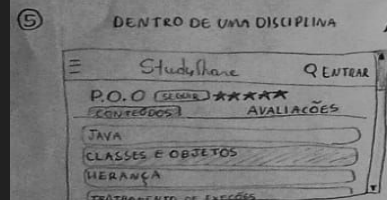 5 DENTRO DE UMA DISCIPLINA
StudyShare ENTRAR
P.O.O SEGUIR ★★★★★
CONTEÚDOS AVALIACÕES
JAVA
CLASSES E OBJETOS
HERANÇA
TRATAMENTO DE EXCEÇÕES